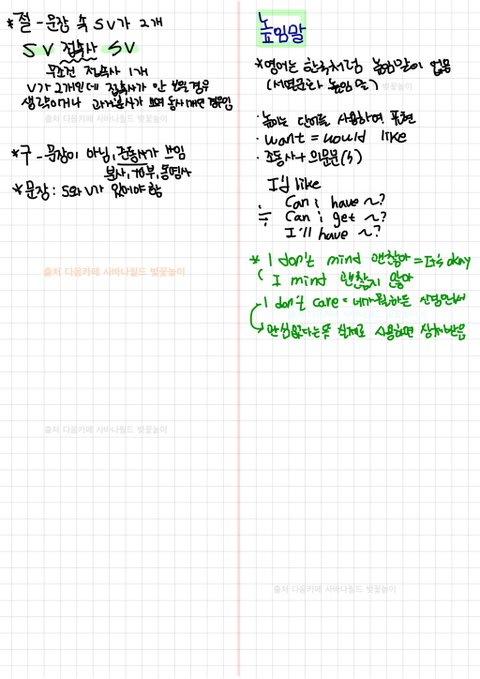 *절 - 문장 속 SV가 2개
S V 접속사 S V
무조건 접속사 1개
V가 2개인데 접속사가 안 보일 경우
생략이거나 과거분사가 보여 동사 때문 경우임
출처 다음카페 사바나월드 벚꽃놀이
*구 - 문장이 아님, 준동사가 쓰임
분사, to부, 동명사
*문장: S와 V가 있어야 함
출처 다음카페 사바나월드 벚꽃놀이
출처 다음카페 사바나월드 벚꽃놀이
높임말
*영어는 한국처럼 높임말이 없음
(서면문화 높임 有)
· 높이는 단어를 사용하여 표현
· want = would like
· 조동사 + 의문문(?)
I'd like
: Can i have ~?
≒ Can i get ~?
I'll have ~?
* I don't mind 괜찮아 = It's okay
I mind 괜찮지 않아
I don't care = 네가 뭘하든 신경안써
관심없다는 뜻 실제로 사용하면 상처받음
출처 다음카페 사바나월드 벚꽃놀이